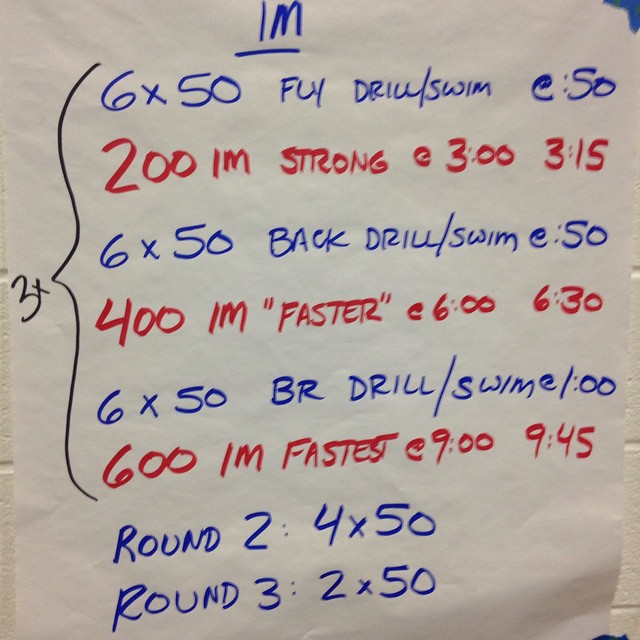 IM
6x50 FLY DRILL/SWIM @:50
200 IM STRONG @ 3:00 3:15
6x50 BACK DRILL/SWIM @:50
3x
400 IM "FASTER" @ 6:00 6:30
6x50 BR DRILL/SWIM @ 1:00
600 IM FASTEST @ 9:00 9:45
ROUND 2: 4x50
ROUND 3: 2x50